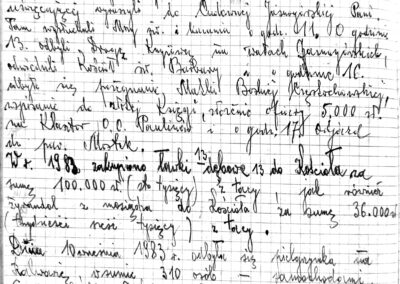 uczęszczającej wyruszyli do Cudownej Jasnogórskiej Pani.
Tam wysłuchali Mszy św. i kazania o godz. 11. O godzinie
13. odbyli Drogę Krzyżową na Wałach Jasnogórskich,
odwiedzili Kościół św. Barbary i o godzinie 16.
odbyło się pożegnanie Matki Boskiej Częstochowskiej,
wpisanie do Księgi, złożenie ofiary 5.000 zł.
na Klasztor O.O. Paulinów i o godz. 17 odjazd
do par. Mostek.
W r. 1983 zakupiono ławki dębowe 13 do Kościoła za
sumę 100.000 zł. (sto tysięcy) z tacy, jak również
żyrandol z mosiądzu do Kościoła za sumę 36.000 zł
(trzydzieści sześć tysięcy) z tacy.
Dnia 10 września 1983 r. odbyła się pielgrzymka na
Kalwarię, w sumie 310 osób – samochodami